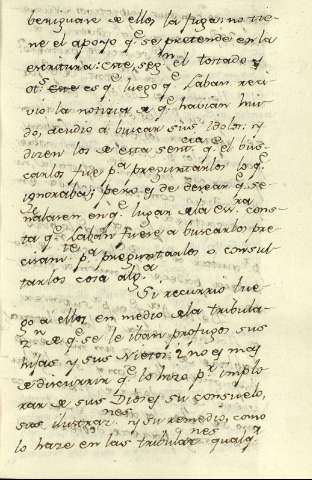 beriguare de ellos la fuga: no tie-
ne el apoyo q.e se pretende en la
escritura: este, seg.n el tostado y
ot.s este es q.e luego q.e Laban reci-
vió la noticia de q.e havian hui-
do, acudio a buscar sus Idolos: y
dizen los de esta sent.cia q.e el bus-
carlos fue p.a preguntarles lo q.e
ignoraba; pero es de desear q.e se-
ñalasen en q.e lugar de la Escra. cons-
ta q.e Laban fuese a buscarlos pre-
cisam.te p.a preguntarles o consul-
tarles cosa alg.a
Si recurrio lue-
go a ellos en medio de la tribula-
z.n de q.e se le iban profugos sus
hijas y sus Nietos: no es mas
de discurrir q.e lo hizo p.a implo-
rar de sus Dioses su consuelo,
sus ilustrac.nes y su remedio, como
lo haze en las tribulac.nes qualq.a